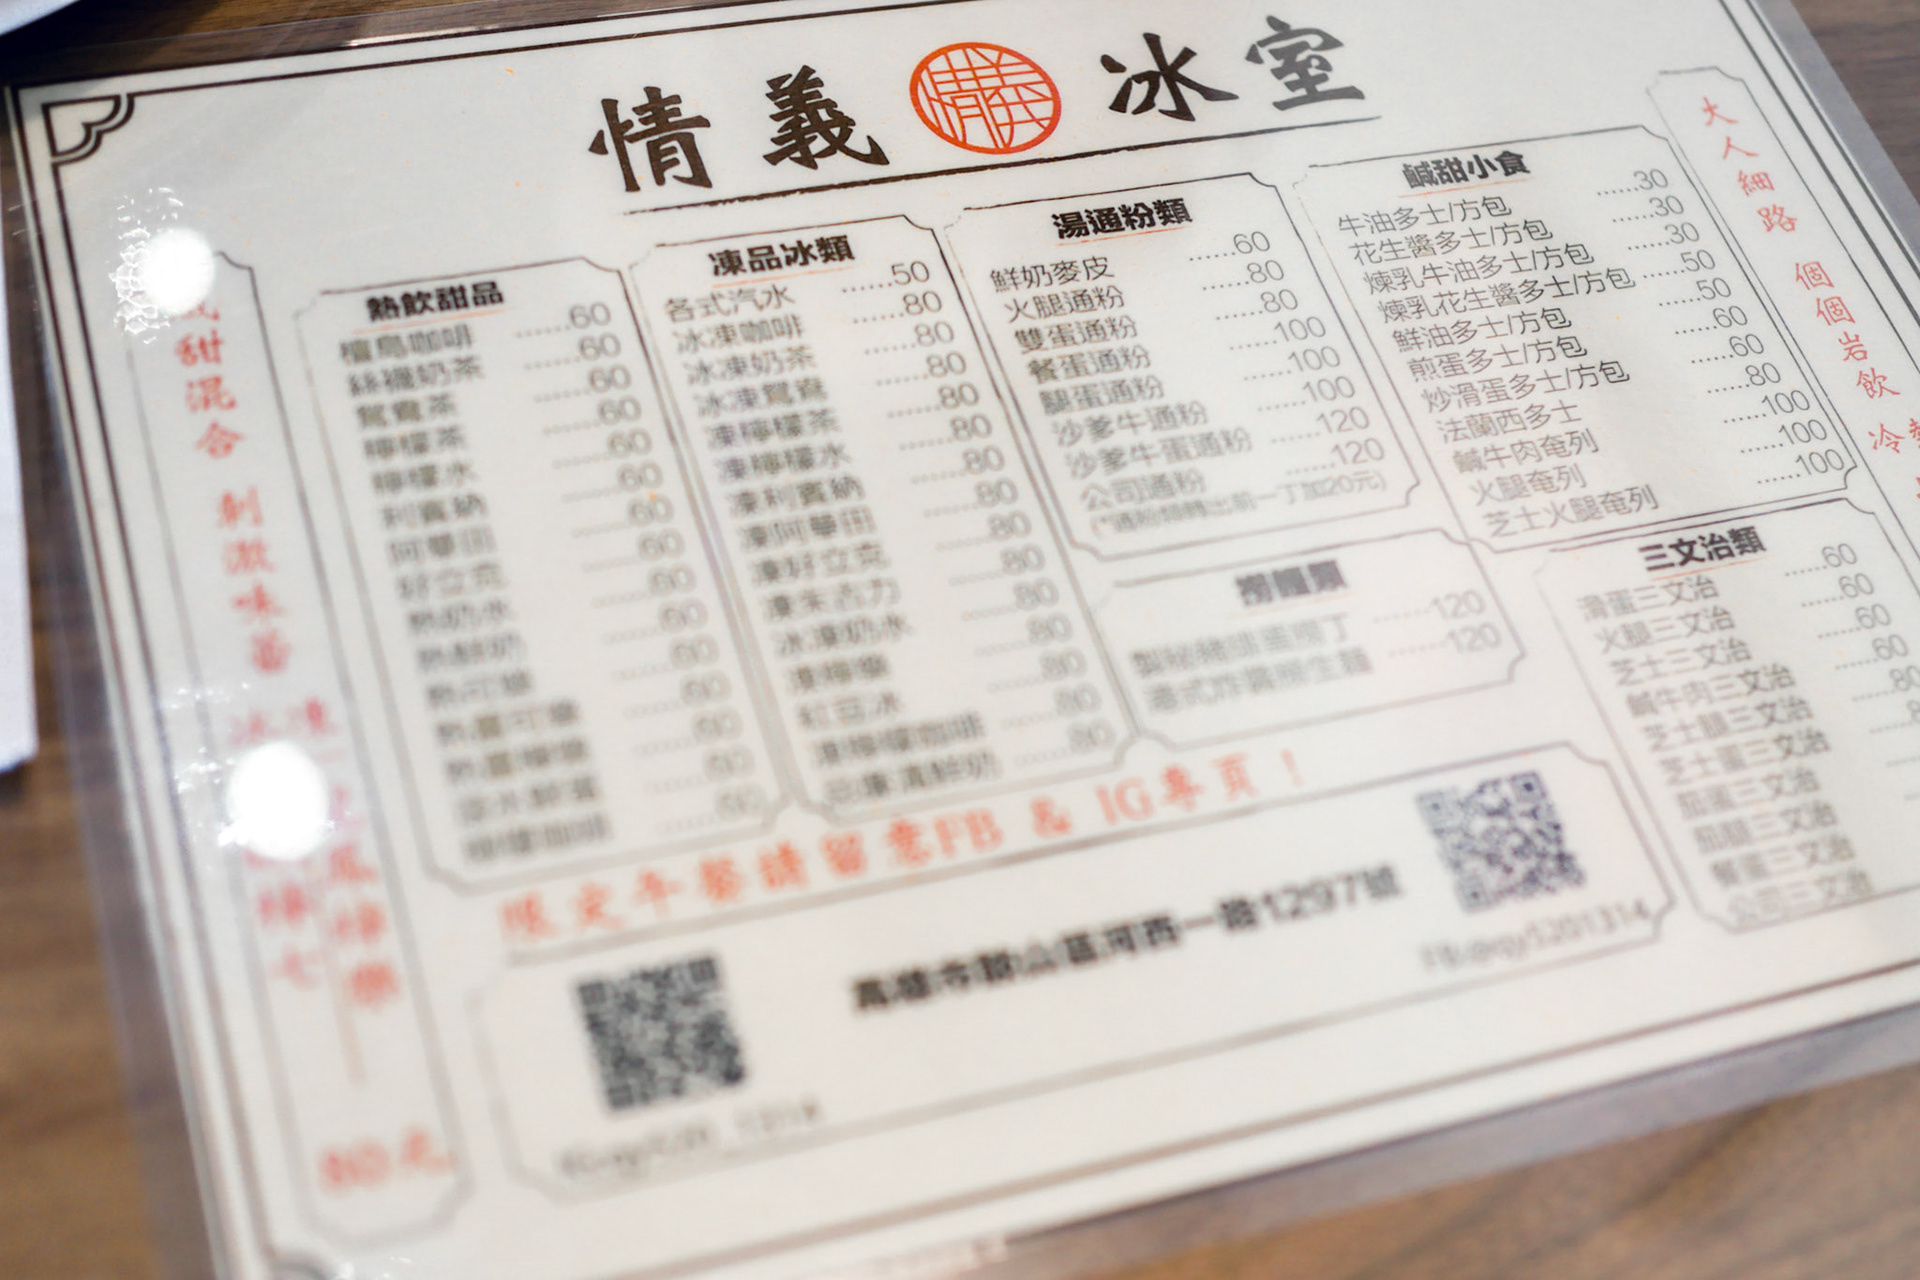 情義 冰室
熱飲甜品
檀島咖啡 ......60
絲襪奶茶 ......60
鴛鴦茶 ......60
檸檬茶 ......60
檸檬水 ......60
利賓納 ......60
阿華田 ......60
好立克 ......60
熱奶水 ......60
熱鮮奶 ......60
熱可樂 ......60
熱薑可樂 ......60
熱薑檸樂 ......60
檸檬咖啡 ......60
凍品冰類
各式汽水 ......50
冰凍咖啡 ......80
冰凍奶茶 ......80
冰凍鴛鴦 ......80
凍檸檬茶 ......80
凍檸檬水 ......80
凍利賓納 ......80
凍阿華田 ......80
凍好立克 ......80
凍朱古力 ......80
冰凍奶水 ......80
凍檸樂 ......80
紅豆冰 ......80
凍檸檬咖啡 ......80
湯通粉類
鮮奶麥皮 ......60
火腿通粉 ......80
雙蛋通粉 ......80
餐蛋通粉 ......100
腿蛋通粉 ......100
沙爹牛通粉 ......100
沙爹牛蛋通粉 ......120
公司通粉 ......120
撈麵類
......120
......120
鹹甜小食
牛油多士/方包 ......30
花生醬多士/方包 ......30
煉乳牛油多士/方包 ......30
煉乳花生醬多士/方包 ......50
鮮油多士/方包 ......50
煎蛋多士/方包 ......60
炒滑蛋多士/方包 ......60
法蘭西多士 ......80
鹹牛肉奄列 ......100
火腿奄列 ......100
芝士火腿奄列 ......100
三文治類
滑蛋三文治 ......60
火腿三文治 ......60
芝士三文治 ......60
鹹牛肉三文治 ......60
芝士腿三文治 ......80
芝士蛋三文治
茄蛋三文治
茄腿三文治
餐蛋三文治
公司三文治
大人細路 個個岩飲 冷
甜混合 刺激味蕾
80元
限定午餐請留意FB & IG專頁！
高雄市鼓山區河西一路1297號